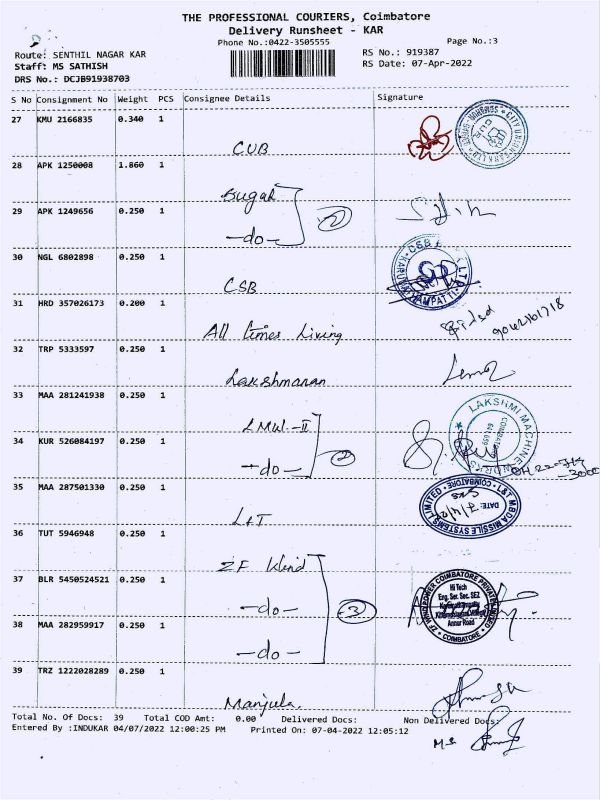 THE PROFESSIONAL COURIERS, Coimbatore
Delivery Runsheet - KAR
Phone No.:0422-3505555
Page No.:3
Route: SENTHIL NAGAR KAR
RS No.: 919387
Staff: MS SATHISH
RS Date: 07-Apr-2022
DRS No.: DCJB91938703
S No Consignment No Weight PCS Consignee Details Signature
27 KMU 2166835 0.340 1
CUB
28 APK 1250008 1.860 1
29 APK 1249656 0.250 1
-do-
30 NGL 6802898 0.250 1
CSB
31 HRD 357026173 0.200 1
All times Living
32 TRP 5333597 0.250 1
Lakshmanan
33 MAA 281241938 0.250 1
LAKSHMI MACHINE WORKS
COIMBATORE
34 KUR 526084197 0.250 1
-do- 2
35 MAA 287501330 0.250 1
L&T
L&T MBDA MISSILE SYSTEMS LIMITED
COIMBATORE
DATE:
36 TUT 5946948 0.250 1
ZF Wind
37 BLR 5450524521 0.250 1
-do- 3
ZF WIND POWER COIMBATORE PRIVATE LIMITED
Hi Tech
Eng. Ser. Sec. SEZ
Annur Road
COIMBATORE
38 MAA 282959917 0.250 1
-do-
39 TRZ 1222028289 0.250 1
Manjula
Total No. Of Docs: 39 Total COD Amt: 0.00 Delivered Docs: Non Delivered Docs:
Entered By :INDUKAR 04/07/2022 12:00:25 PM Printed On: 07-04-2022 12:05:12